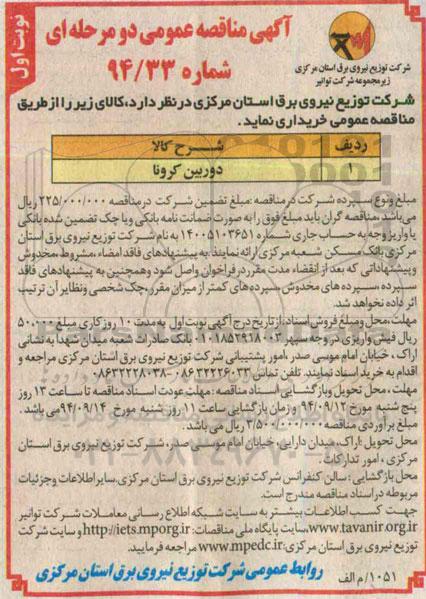 نوبت اول
آگهی مناقصه عمومی دو مرحله ای
شماره ۹۴/۳۳
شرکت توزیع نیروی برق استان مرکزی
زیرمجموعه شرکت توانیر
شرکت توزیع نیروی برق استان مرکزی در نظر دارد، کالای زیر را از طریق
مناقصه عمومی خریداری نماید.
ردیف شرح کالا
۱ دوربین کرونا
مبلغ ونوع سپرده شرکت در مناقصه: مبلغ تضمین شرکت درمناقصه ۲۲۵/۰۰۰/۰۰۰ ریال
می باشد. مناقصه گران باید مبلغ فوق را به صورت ضمانت نامه بانکی ویا چک تضمین شده بانکی
یا واریز وجه به حساب جاری شماره ۱۴۰۰۵۱۰۳۶۵۱ به نام شرکت توزیع نیروی برق استان
مرکزی بانک مسکن شعبه مرکزی ارائه نمایند. به پیشنهادهای فاقد امضاء، مشروط، مخدوش
وپیشنهاداتی که بعد از انقضاء مدت مقرر در فراخوان واصل شود وهمچنین به پیشنهادهای فاقد
سپرده، سپرده های مخدوش، سپرده های کمتر از میزان مقرر، چک شخصی ونظایر آن ترتیب
اثر داده نخواهد شد.
مهلت، محل ومبلغ فروش اسناد: از تاریخ درج آگهی نوبت اول به مدت ۱۰ روز کاری مبلغ ۵۰۰۰۰۰
ریال فیش واریزی در وجه سپهر ۰۱۰۱۸۵۲۹۱۸۰۰۳ بانک صادرات شعبه میدان شهدا به نشانی
اراک، خیابان امام موسی صدر، امور پشتیبانی شرکت توزیع نیروی برق استان مرکزی مراجعه و
اقدام به خرید اسناد نمایند. تلفن تماس ۰۸۶۳۲۲۲۶۰۳۳-۰۸۶۳۲۲۲۸۰۳۸
مهلت، محل تحویل وبازگشایی اسناد مناقصه: مهلت عودت اسناد مناقصه تا ساعت ۱۳ روز
پنج شنبه مورخ ۹۴/۰۹/۱۲ و زمان بازگشایی ساعت ۱۱ روز شنبه مورخ ۹۴/۰۹/۱۴ می باشد.
مبلغ برآوردی مناقصه ۳/۵۰۰/۰۰۰/۰۰۰ ریال می باشد.
محل تحویل: اراک، میدان دارایی، خیابان امام موسی صدر، شرکت توزیع نیروی برق استان
مرکزی، امور تدارکات.
محل بازگشایی: سالن کنفرانس شرکت توزیع نیروی برق استان مرکزی. سایر اطلاعات وجزئیات
مربوطه در اسناد مناقصه مندرج است.
جهت کسب اطلاعات بیشتر به سایت شبکه اطلاع رسانی معاملات شرکت توانیر
www.tavanir.org.ir، سایت پایگاه ملی مناقصات: http://iets.mporg.ir و سایت شرکت
توزیع نیروی برق استان مرکزی: www.mpedc.ir مراجعه فرمایید.
۱۰۵۱/م الف
روابط عمومی شرکت توزیع نیروی برق استان مرکزی